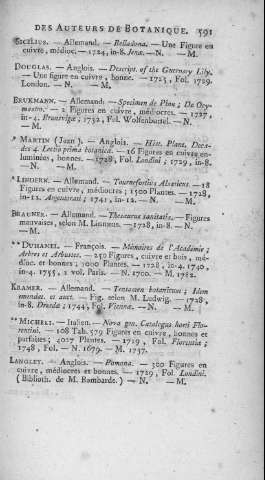 DES AUTEURS DE BOTANIQUE. 591
SICELIUS. — Allemand. — Belladona. — Une Figure en
cuivre, médioc. — 1724, in-8. Jenæ. — N. — M.
DOUGLAS. — Anglois. — Descript. of the Guernsey Lily.
— Une figure en cuivre, bonne. — 1725, Fol. 1729.
London. — N. — M.
BRUKMANN. — Allemand. — Specimen de Pinu ; De
— 2 Figures en cuivre, médiocres. — 1727,
in-4. Brunsvigæ ; 1732, Fol. Wolfenbuttel. — N.
— M.
* MARTIN (Jean). — Anglois. — Hist. Plant.
des 4. Lectio prima botanica. — 16 Figures en cuivre en-
luminées, bonnes. — 1728, Fol. Londini ; 1729, in-8.
— N. — M.
* LINDERN. — Allemand. — Tournefortius Alsaticus. — 18
Figures en cuivre, médiocres ; 1500 Plantes. — 1728,
in-12. Argentorati ; 1741, in-12. — N. — M.
BRAUNER. — Allemand. — Thesaurus sanitatis. — Figures
mauvaises, selon M. Linnæus. — 1728, in-8. — N.
— M.
** DUHAMEL. — François. — Mémoires de l'Académie ;
Arbres et Arbustes. — 250 Figures, cuivre et bois, mé-
dioc. et bonnes ; 1000 Plantes. — 1728, in-4. 1740,
in-4. 1755, 2 vol. Paris. — N. 1700. — M. 1782.
KRAMER. — Allemand. — Tentamen botanicum ; Idem
emendat. et auct. — Fig. selon M. Ludwig. — 1728,
in-8. Dresdæ ; 1744, Fol. Viennæ. — N. — M.
** MICHELI. — Italien. — Nova gen. Catalogus horti Flo-
rentini. — 108 Tab. 579 Figures en cuivre, bonnes et
parfaites ; 4027 Plantes. — 1729, Fol. Florentiæ ;
1748, Fol. — N. 1679. — M. 1737.
LANGLEY. — Anglois. — Pomona. — 300 Figures en
cuivre, médiocres et bonnes. — 1729, Fol. Londini.
( Biblioth. de M. Bombarde. ) — N. — M.